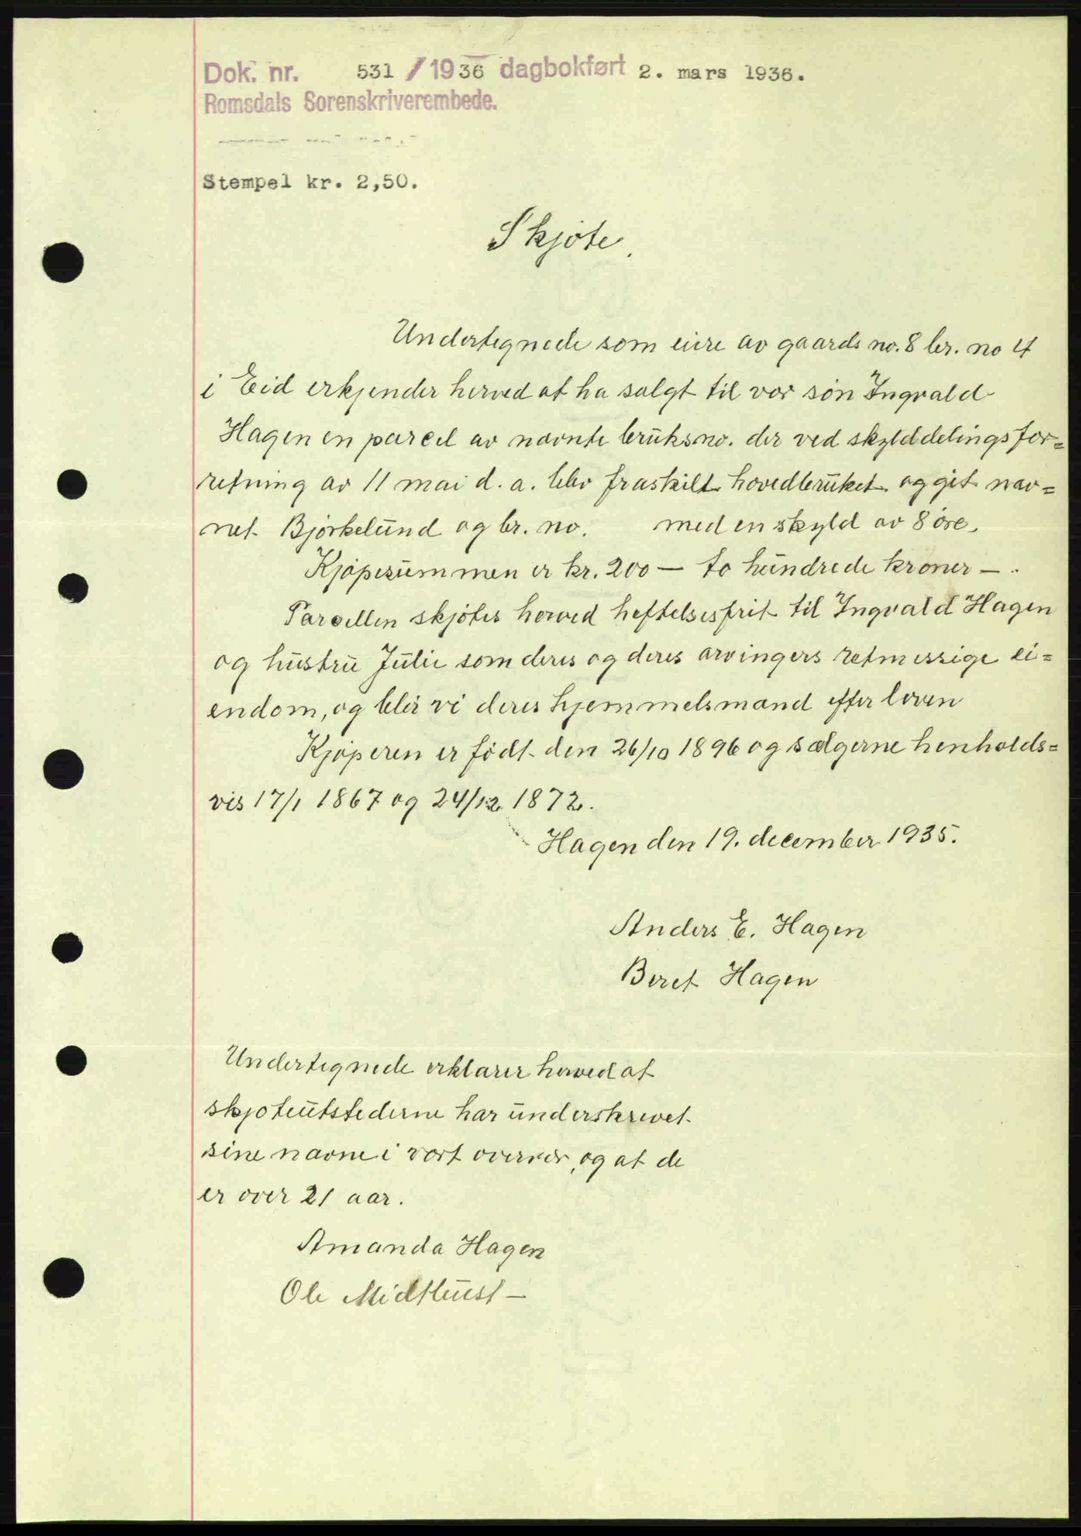 Dok. nr. 531 / 1936 dagbokført 2. mars 1936.
Romsdals Sorenskriverembede.
Stempel kr. 2,50.
Skjøte.
Undertegnede som eiere av gaards no. 8 br. no 4
i Eid erkjender herved at ha solgt til vor søn Ingvald
Hagen en parcel av nævnte bruksno. der ved skylddelingsfor=
retning av 11 mai d. a. blev fraskilt hovedbruket og git nav=
net Bjørkelund og br. no. med en skyld av 8 øre.
Kjøpesummen er kr. 200 — to hundrede kroner —.
Parcellen skjøtes herved heftelsesfrit til Ingvald Hagen
og hustru Julie som deres og deres arvingers retmessige ei=
endom, og blir vi deres hjemmelsmænd efter loven
Kjøperen er født den 26/10 1896 og sælgerne henholds=
vis 17/1 1867 og 24/12 1872.
Hagen den 19. december 1935.
Anders E. Hagen
Beret Hagen
Undertegnede erklærer herved at
skjøteutstederne har underskrevet
sine navne i vort overvær, og at de
er over 21 aar.
Amanda Hagen
Ole Midthust —